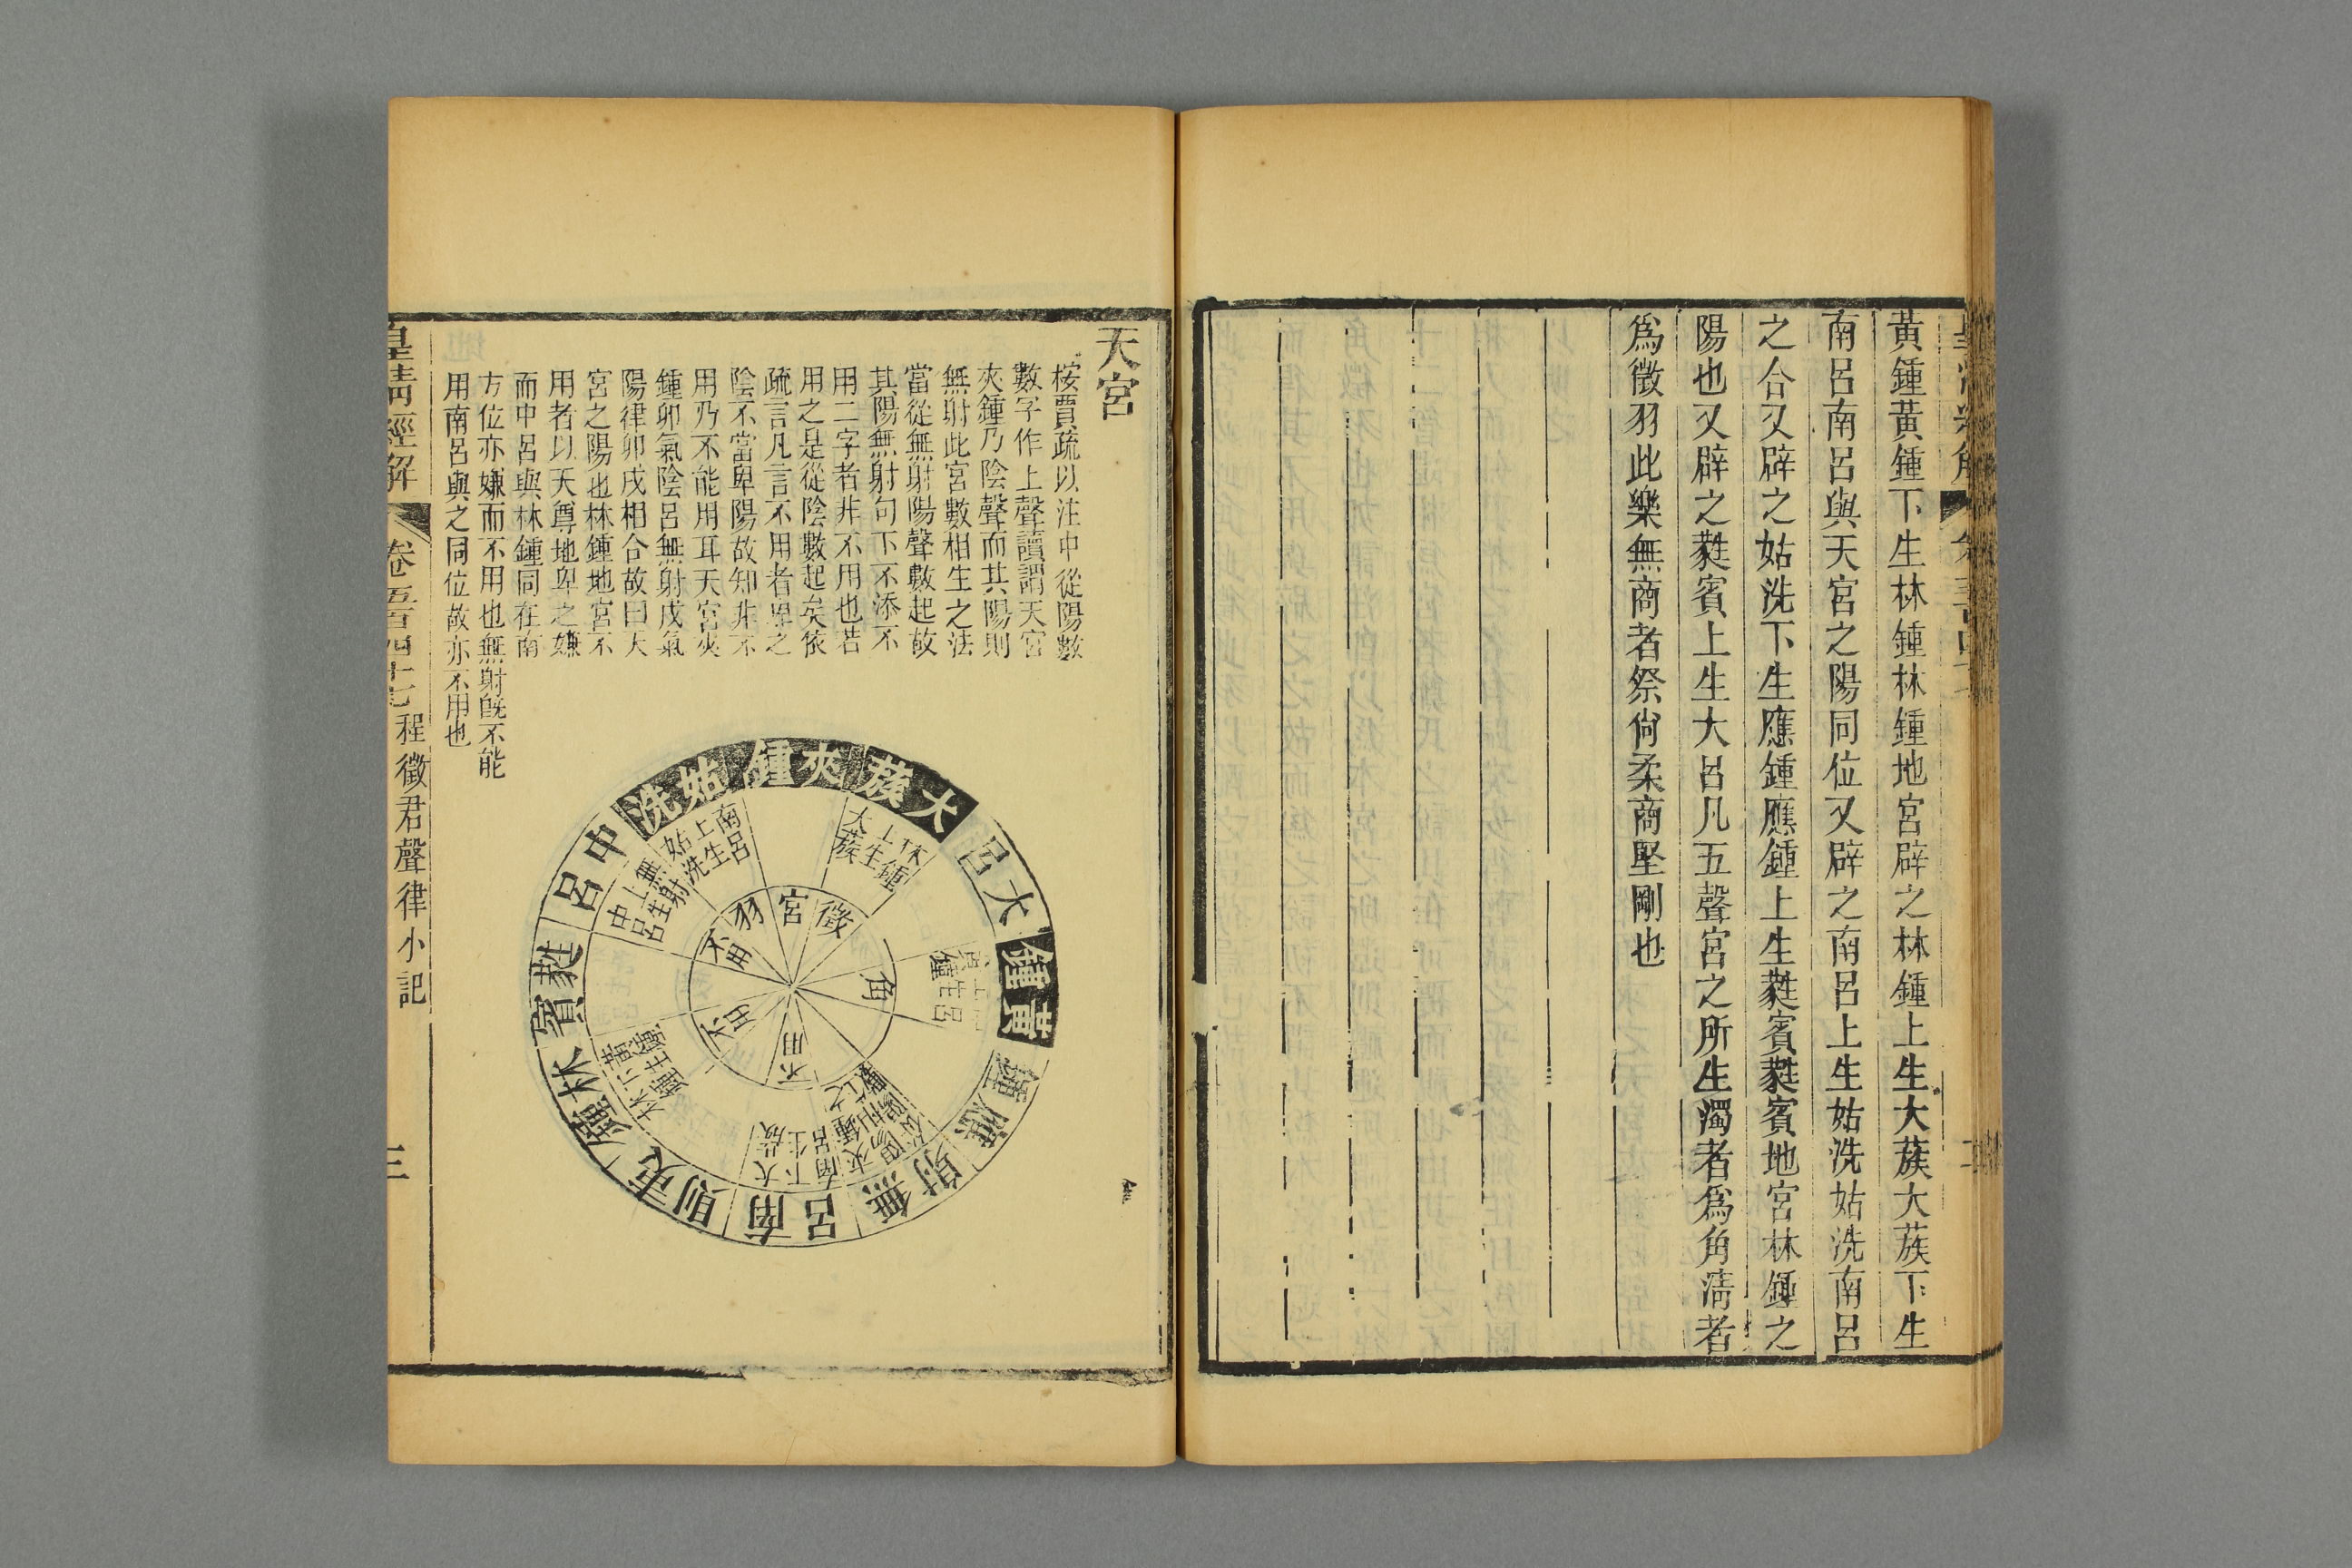 黃鍾黃鍾下生林鍾林鍾地宮辟之林鍾上生大蔟大蔟下生
南呂南呂與天宮之陽同位又辟之南呂上生姑洗姑洗南呂
之合又辟之姑洗下生應鍾應鍾上生蕤賓蕤賓地宮林鍾之
陽也又辟之蕤賓上生大呂凡五聲宮之所生濁者爲角淸者
爲徵羽此樂無商者祭尙柔商堅剛也
天宮
桉賈疏以注中從陽數
數字作上聲讀謂天宮
夾鍾乃陰聲而其陽則
無射此宮數相生之法
當從無射陽聲數起故
其陽無射句下不添不
用二字者非不用也若
用之是從陰數起矣依
疏言凡言不用者卑之
陰不當卑陽故知非不
用乃不能用耳天宮夾
鍾卯氣陰呂無射戌氣
陽律卯戌相合故曰天
宮之陽也林鍾地宮不
用者以天尊地卑之嫌
而中呂與林鍾同在南
方位亦嫌而不用也無射旣不能
用南呂與之同位故亦不用也
夾鍾
大蔟
大呂
黃鍾
應鍾
無射
南呂
夷則
林鍾
蕤賓
中呂
姑洗
林鍾
上生
大蔟
南呂
上生
姑洗
無射
上生
中呂
黃鍾
下生
林鍾
大蔟
下生
南呂
宮
徵
角
不用
不用
不用
羽
皇淸經解
卷五百四十七
程徵君聲律小記
三